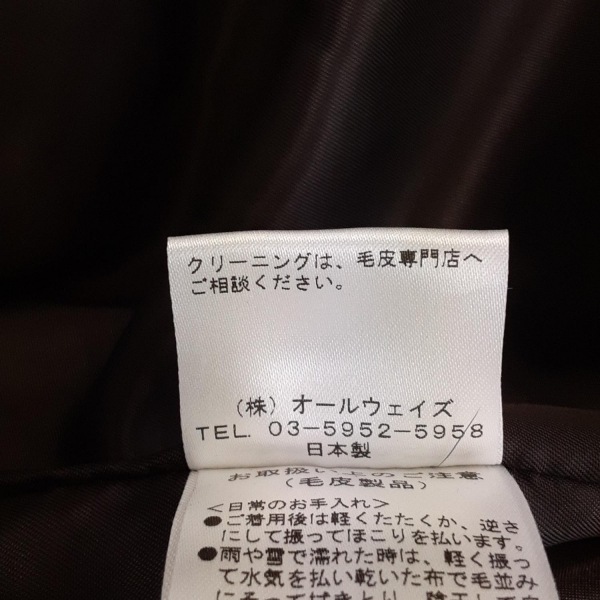 クリーニングは、毛皮専門店へ
ご相談ください。
（株）オールウェイズ
TEL. 03-5952-5958
日本製
お取扱い上のご注意
(毛皮製品)
<日常のお手入れ>
●ご着用後は軽くたたくか、逆さ
にして振ってほこりを払います。
●雨や雪で濡れた時は、軽く振っ
て水気を払い乾いた布で毛並み
にそって拭きとり、陰干しで自